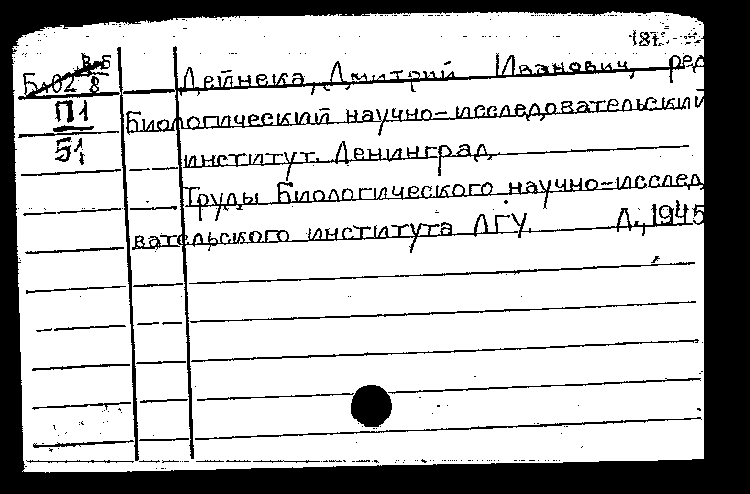 181
Бл02 В-Б/8
Дейнека, Дмитрий Иванович, ред
П1
51
Биологический научно-исследовательский
институт. Ленинград.
Труды Биологического научно-исслед
вательского института ЛГУ. Л., 1945